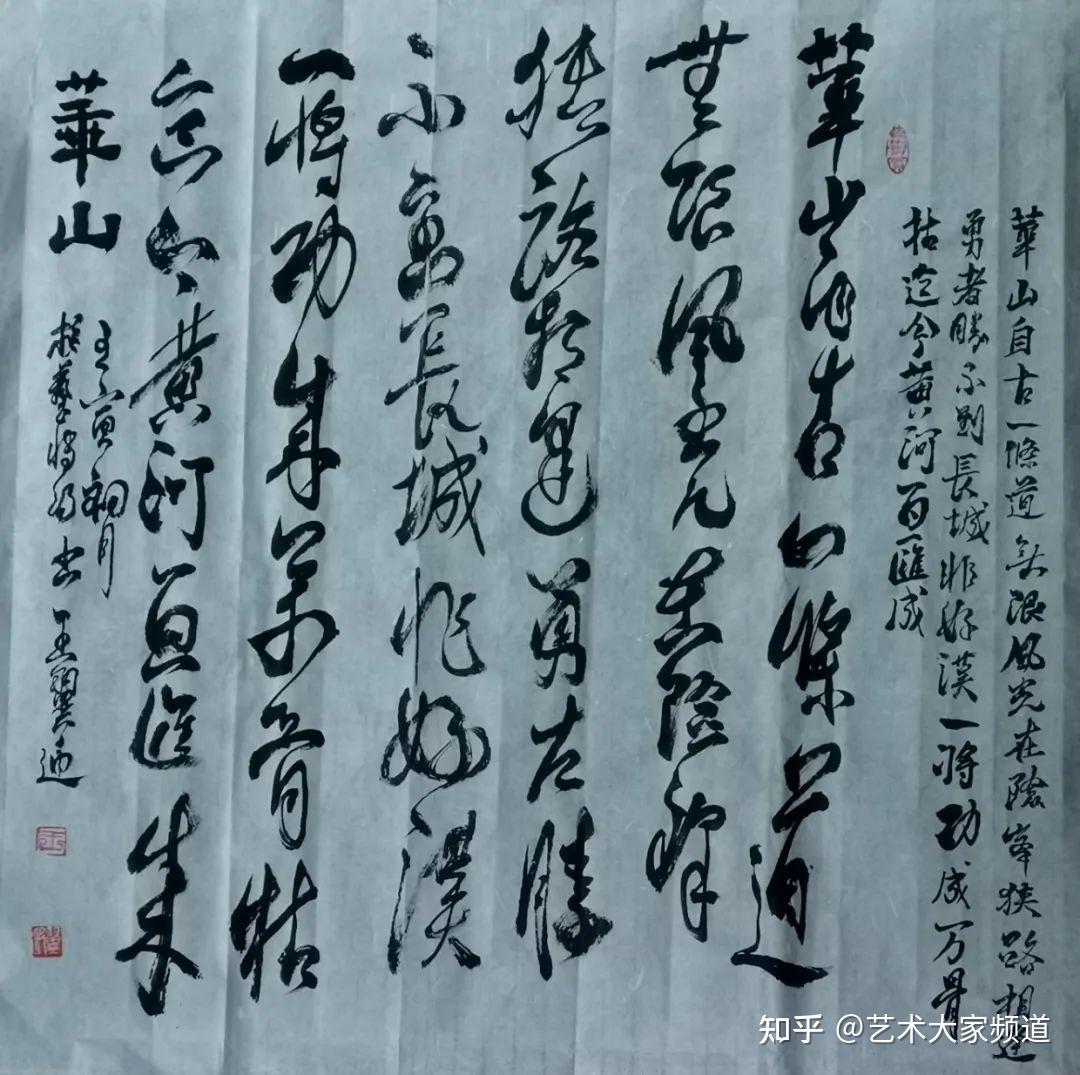 華山自古一條道無限風光在險峯狹路相逢
勇者勝不到長城非好漢一將功成万骨
枯迄今黄河百匯成
華山自古一條道
無限風光在險峰
狹路相逢勇者勝
不到長城非好漢
一將功成萬骨枯
迄今黄河百匯成
華山
壬寅初月
書 王翼
知乎 @艺术大家频道